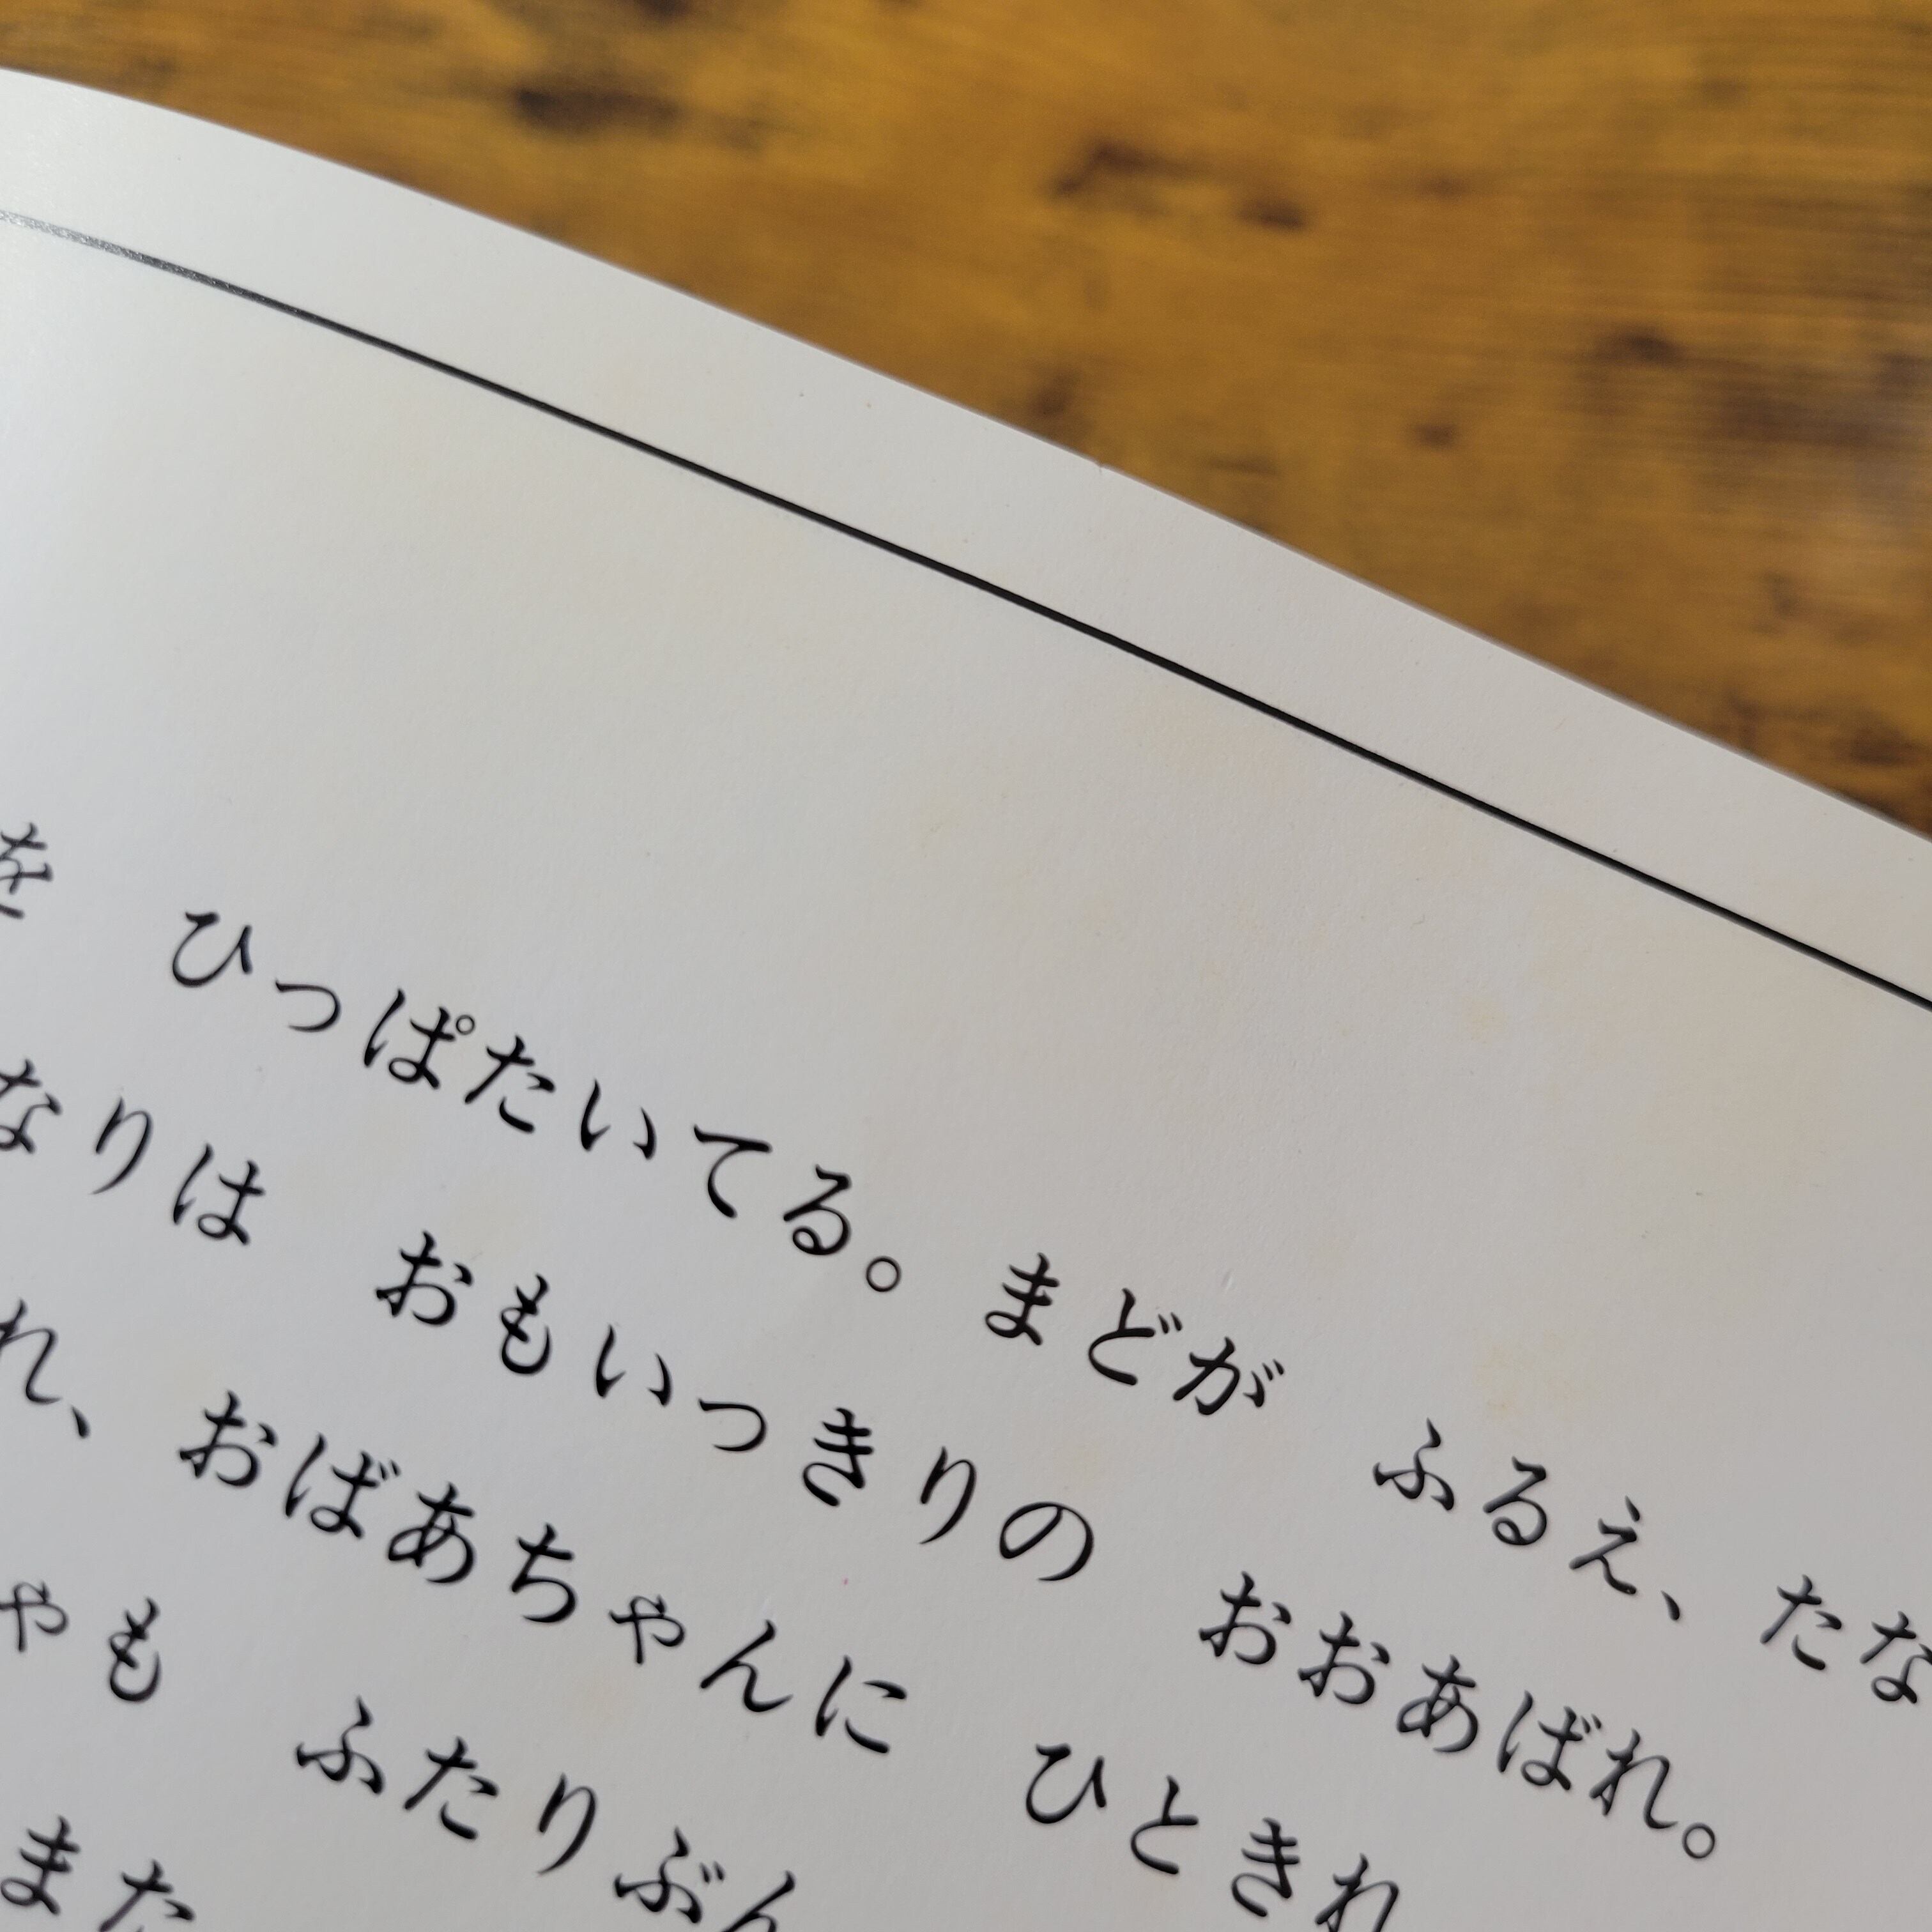 を　ひっぱたいてる。まどが　ふるえ、たな
なりは　おもいっきりの　おおあばれ。
れ、おばあちゃんに　ひときれ
ゃも　ふたりぶん
また